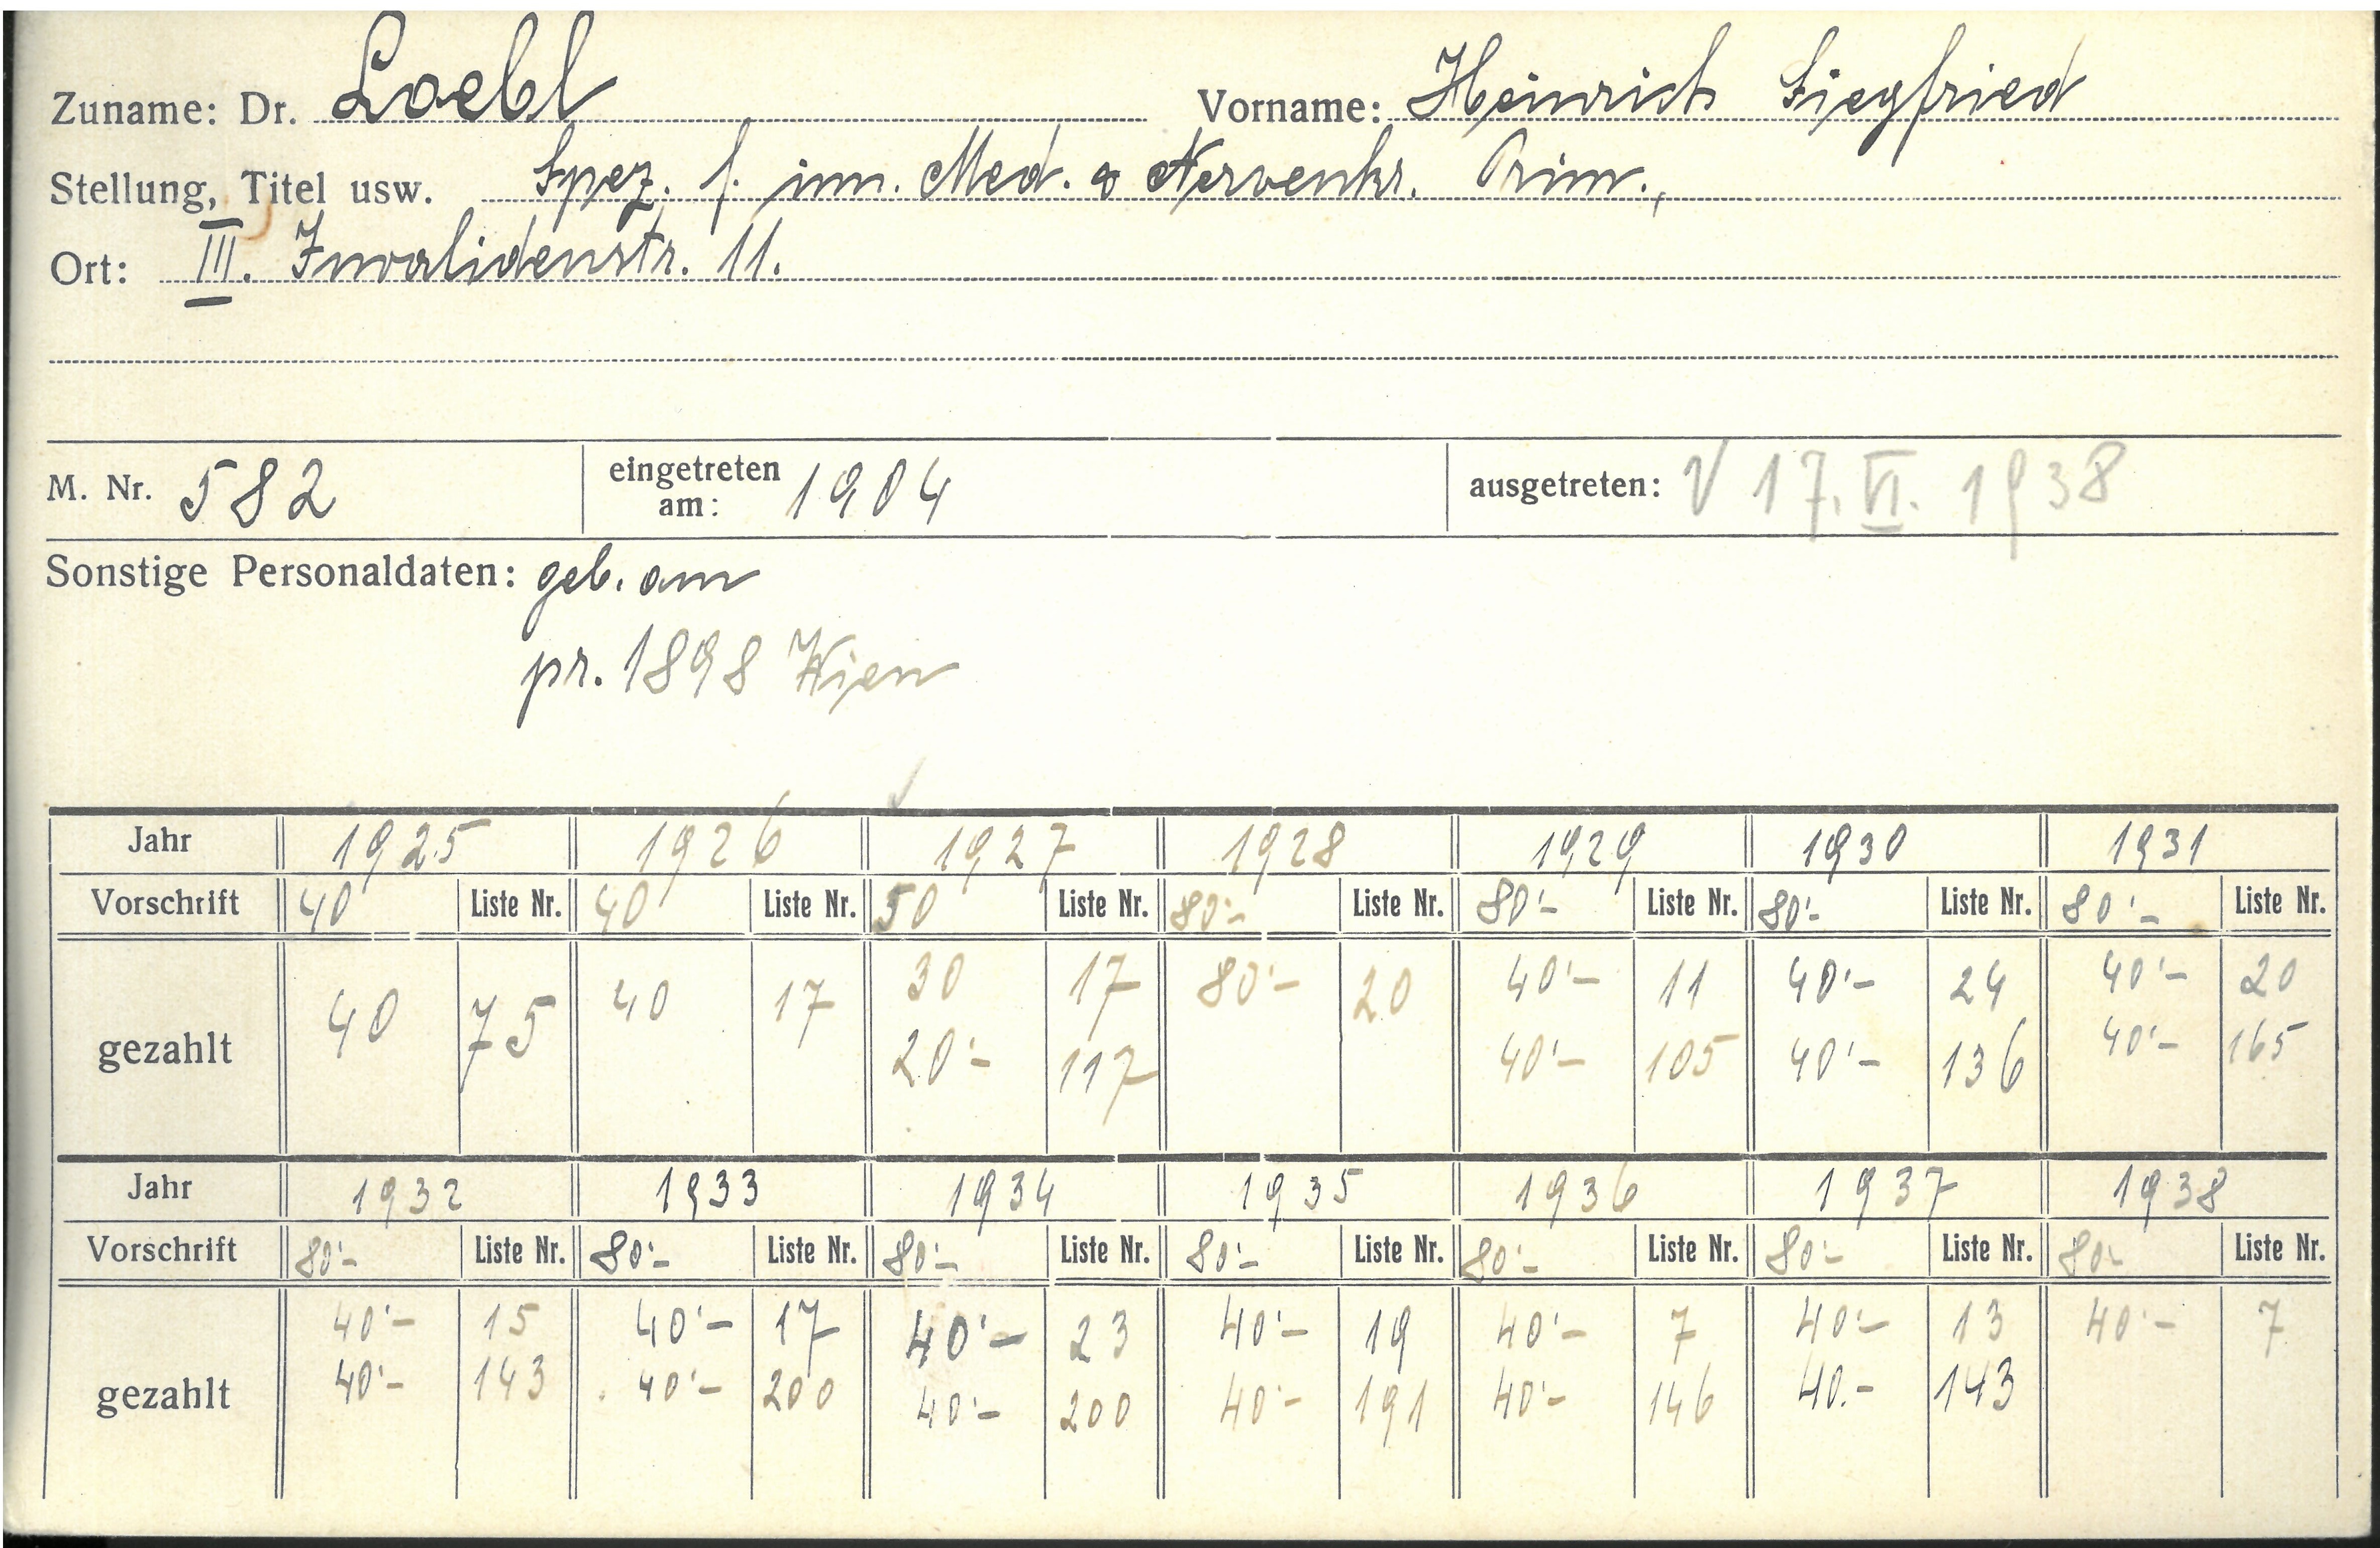 Zuname: Dr. Loebl Vorname: Heinrich Siegfried
Stellung, Titel usw. Spez. f. inn. Med. & Nervenkr. Prim.,
Ort: III. Invalidenstr. 11.
M. Nr. 582 eingetreten am: 1904 ausgetreten: √ 17. VI. 1938
Sonstige Personaldaten: geb. am
pr. 1898 Wien
Jahr 1925 1926 1927 1928 1929 1930 1931
Vorschrift 40 Liste Nr. 40 Liste Nr. 50 Liste Nr. 80'- Liste Nr. 80'- Liste Nr. 80'- Liste Nr. 80'- Liste Nr.
gezahlt 40 75 40 17 30 17 80'- 20 40'- 11 40'- 24 40'- 20
20'- 117 40'- 105 40'- 136 40'- 165
Jahr 1932 1933 1934 1935 1936 1937 1938
Vorschrift 80'- Liste Nr. 80'- Liste Nr. 80'- Liste Nr. 80'- Liste Nr. 80'- Liste Nr. 80'- Liste Nr. 80'- Liste Nr.
gezahlt 40'- 15 40'- 17 40'- 23 40'- 19 40'- 7 40'- 13 40'- 7
40'- 143 40'- 200 40'- 200 40'- 191 40'- 146 40.- 143